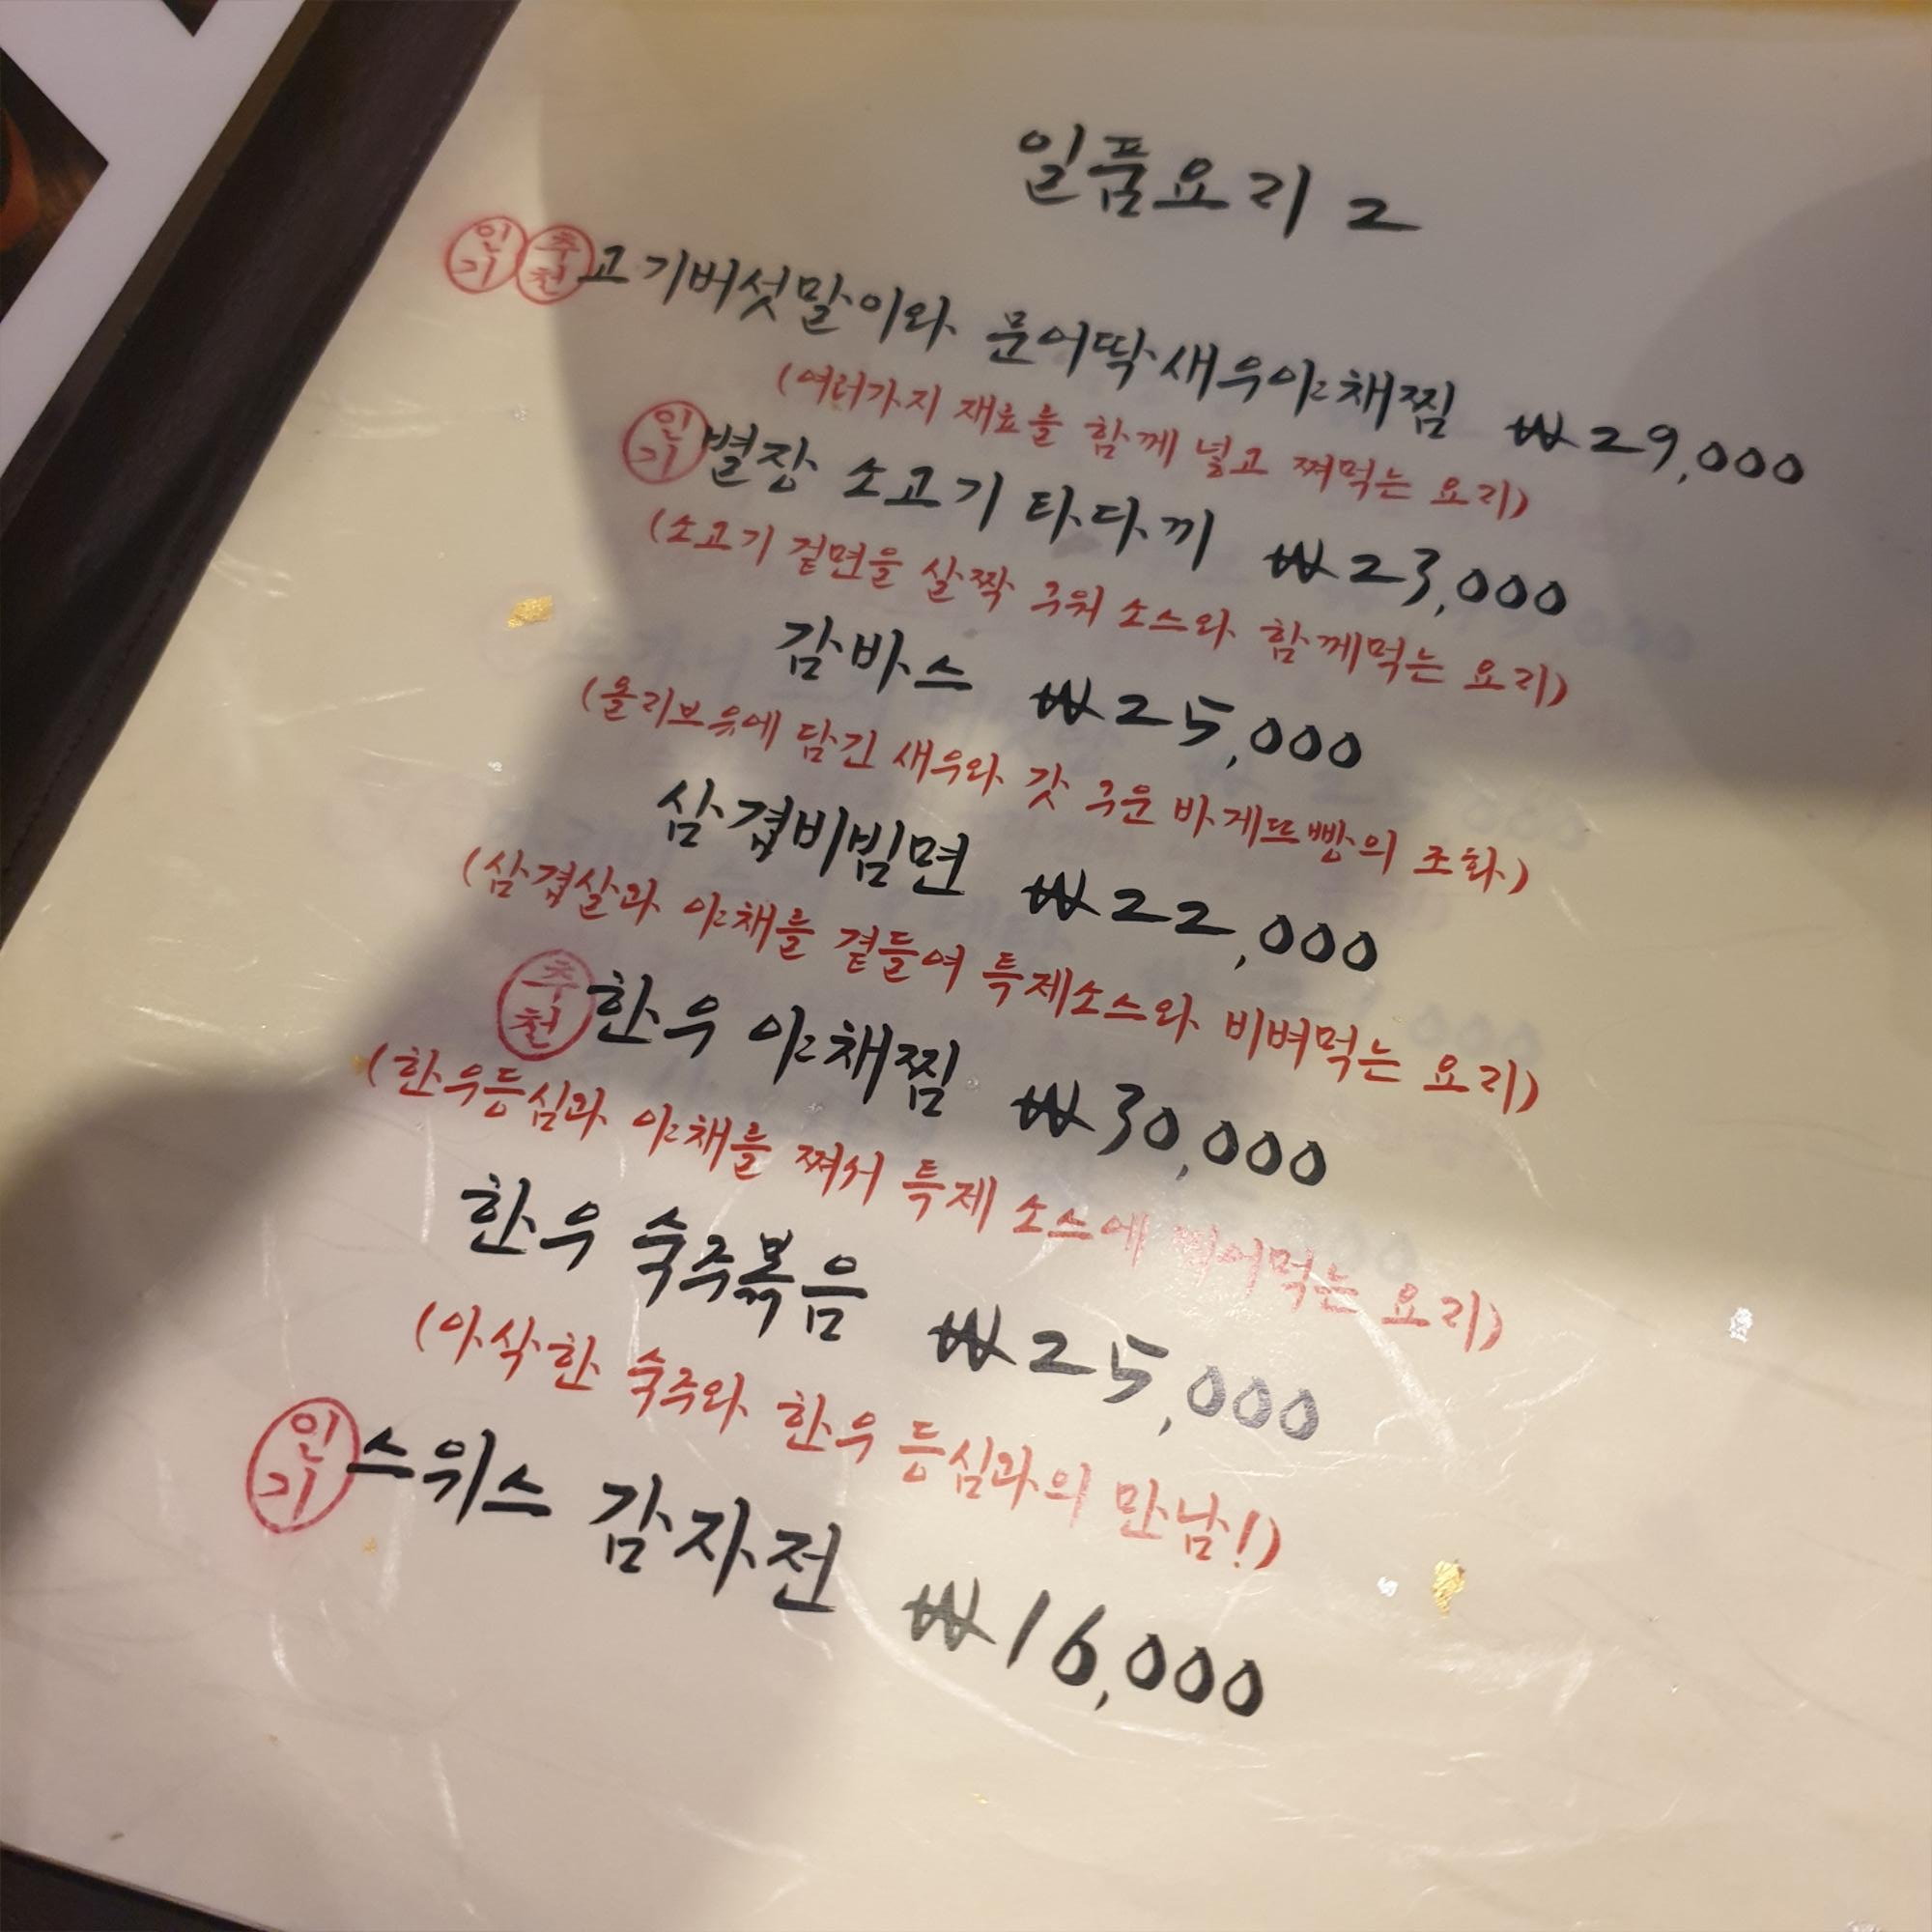 일품요리 2
인기 추천 고기버섯말이와 문어딱새우야채찜 ₩29,000
(여러가지 재료를 함께 넣고 쪄먹는 요리)
인기 별장 소고기 타다끼 ₩23,000
(소고기 겉면을 살짝 구워 소스와 함께먹는 요리)
감바스 ₩25,000
(올리브유에 담긴 새우와 갓 구운 바게뜨빵의 조화)
삼겹비빔면 ₩22,000
(삼겹살과 야채를 곁들여 특제소스와 비벼먹는 요리)
추천 한우 야채찜 ₩30,000
(한우등심과 야채를 쪄서 특제 소스에 찍어먹는 요리)
한우 숙주볶음 ₩25,000
(아삭한 숙주와 한우 등심과의 만남!)
인기 스위스 감자전 ₩16,000